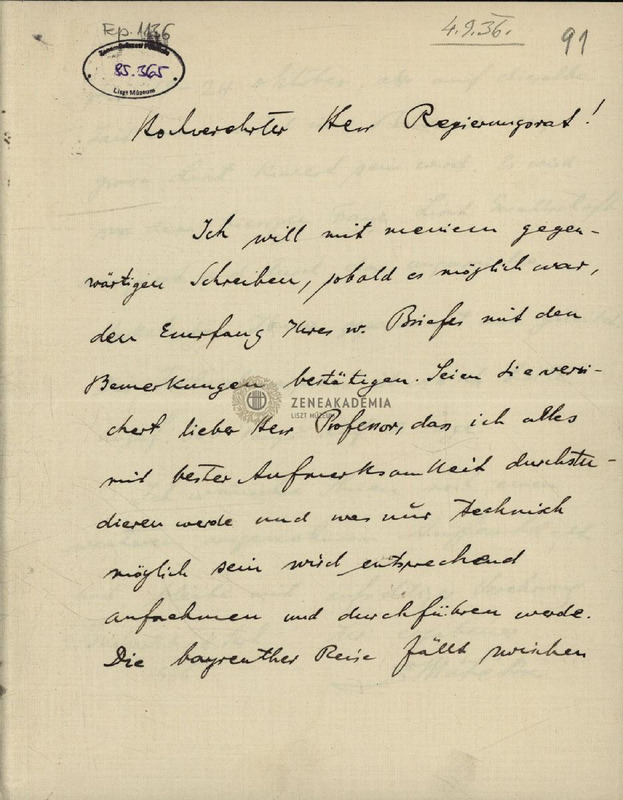 Ep. 1136
4.9.36.
91
Zeneakadémia
85.365
Liszt Múzeum
Hochverehrter Herr Regierungsrat!
Ich will mit meinem gegen-
wärtigen Schreiben, sobald es möglich war,
den Empfang Ihres w. Briefes mit den
Bemerkungen bestätigen. Seien Sie versi-
chert lieber Herr Professor, dass ich alles
mit bester Aufmerksamkeit durchstu-
dieren werde und was nur technisch
möglich sein wird entsprechend
aufnehmen und durchführen werde.
Die bayreuther Reise fällt zwischen
ZENEAKADÉMIA
LISZT MÚZEUM